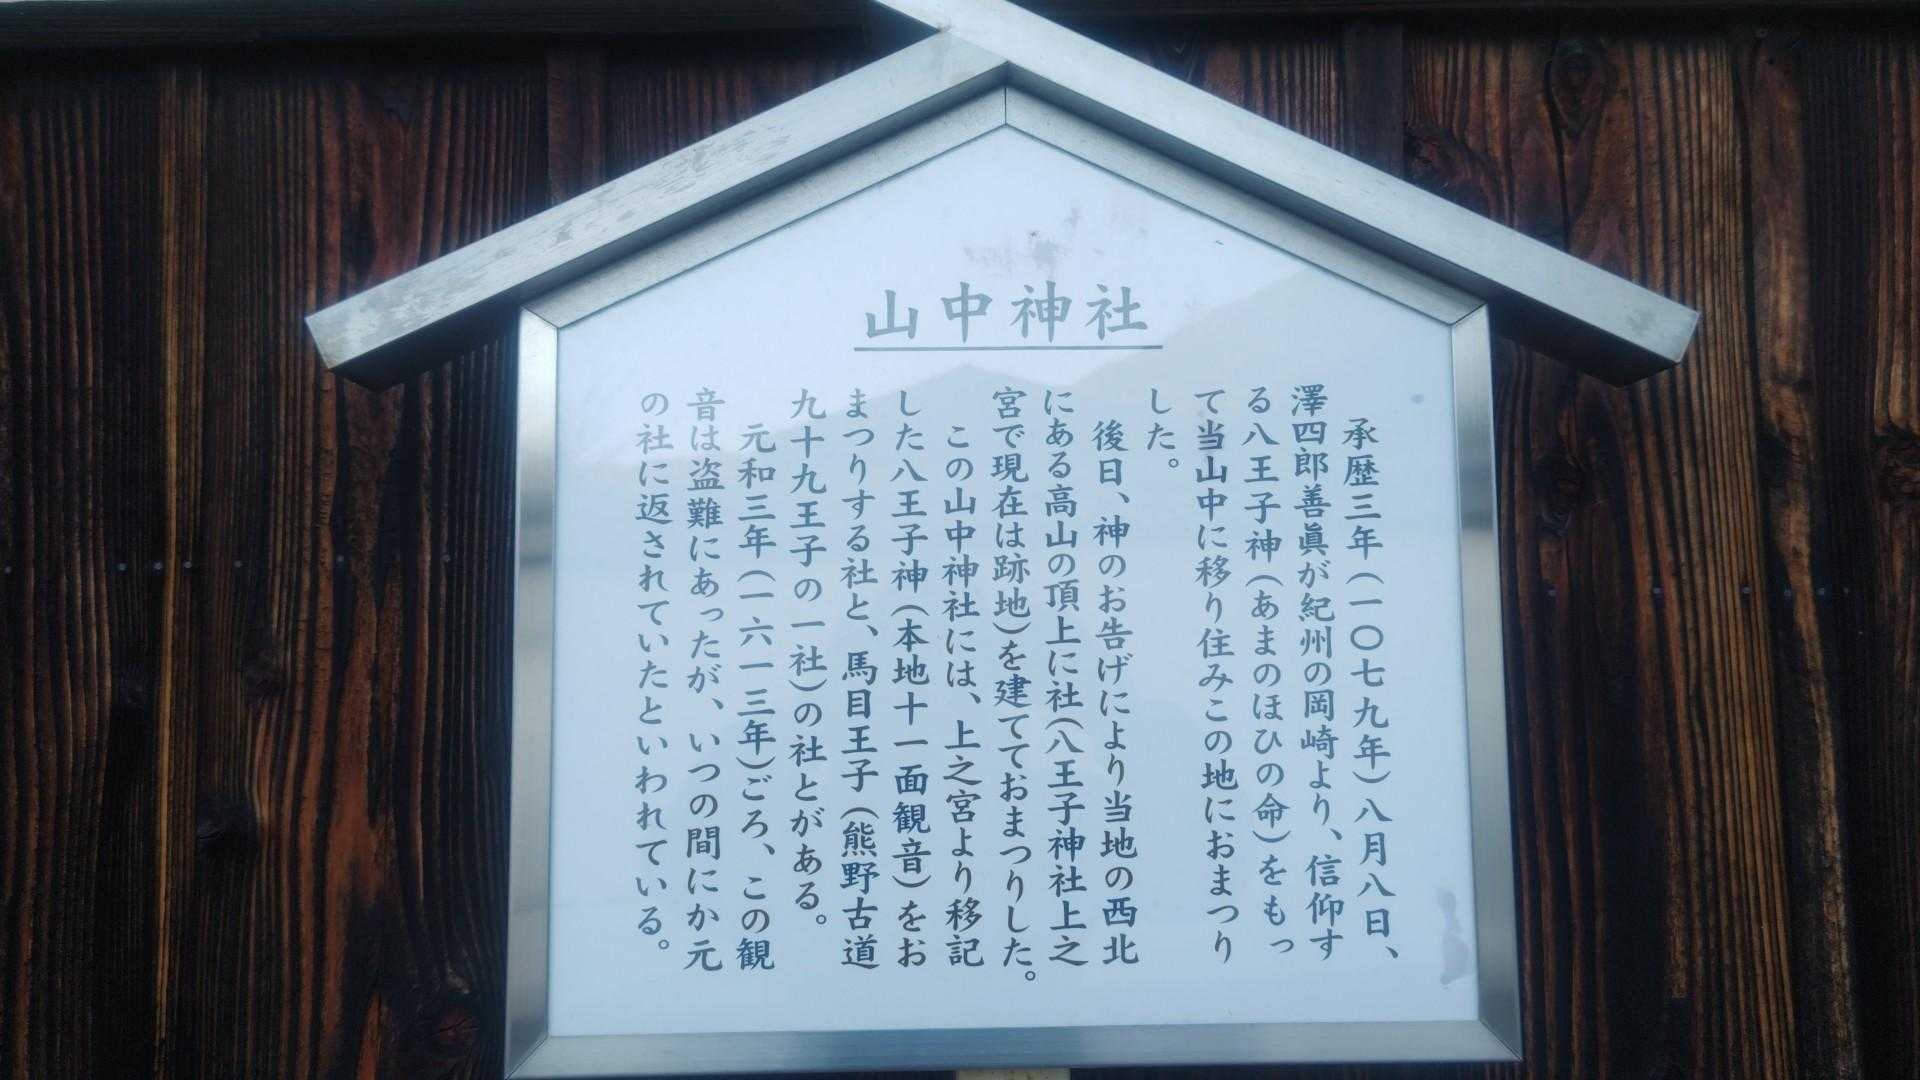 山中神社
承歴三年(一〇七九年)八月八日、
澤四郎善眞が紀州の岡崎より、信仰す
る八王子神(あまのほひの命)をもっ
て当山中に移り住みこの地におまつり
した。
後日、神のお告げにより当地の西北
にある高山の頂上に社(八王子神社上之
宮で現在は跡地)を建てておまつりした。
この山中神社には、上之宮より移記
した八王子神(本地十一面観音)をお
まつりする社と、馬目王子(熊野古道
九十九王子の一社)の社とがある。
元和三年(一六一三年)ごろ、この観
音は盗難にあったが、いつの間にか元
の社に返されていたといわれている。